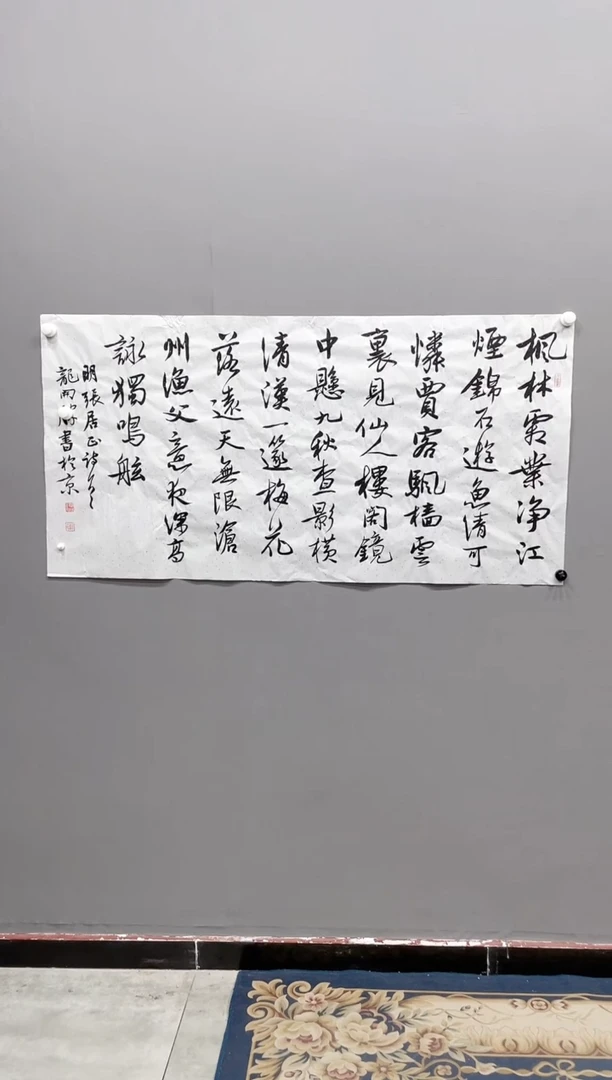 枫林霁業净江
煙錦石遊魚清可
憐賈客颿檣雲
裏見仙人樓閣鏡
中懸九秋查影橫
清漢一篴梅花
落遠天無限滄
州漁父意夜深高
詠獨鳴舷
明張居正詩
龍 書於京